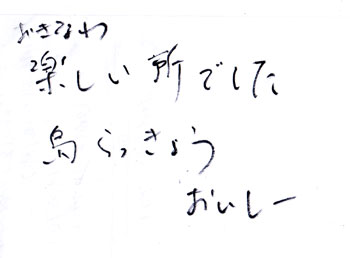 おきなわ
楽しい所でした
島らっきょう
おいしー